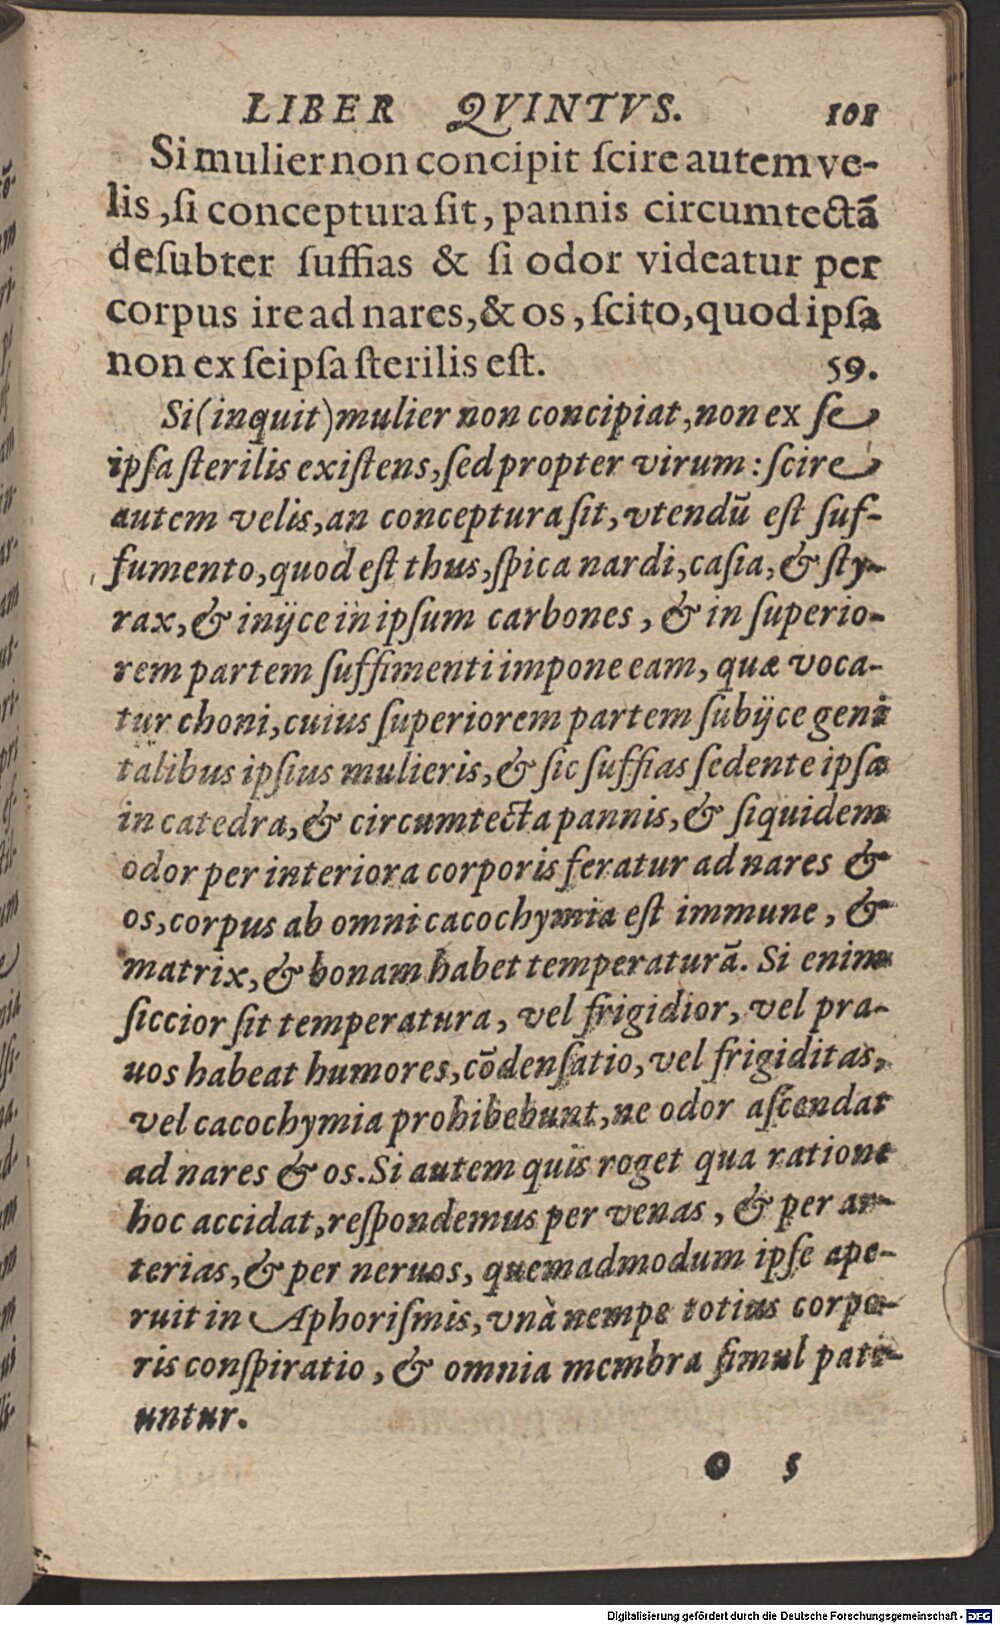 LIBER QVINTVS. 101
Si mulier non concipit ſcire autem ve-
lis, ſi conceptura ſit, pannis circumtectā
deſubter ſuffias & ſi odor videatur per
corpus ire ad nares, & os, ſcito, quod ipſa
non ex ſeipſa ſterilis eſt. 59.
Si (inquit) mulier non concipiat, non ex ſe
ipſa ſterilis exiſtens, ſed propter virum: ſcire
autem velis, an conceptura ſit, vtendū eſt ſuf-
fumento, quod eſt thus, ſpica nardi, caſia, & ſty-
rax, & inijce in ipſum carbones, & in ſuperio-
rem partem ſuffimenti impone eam, quæ voca-
tur choni, cuius ſuperiorem partem ſubijce geni
talibus ipſius mulieris, & ſic ſuffias ſedente ipſa
in catedra, & circumtecta pannis, & ſiquidem
odor per interiora corporis feratur ad nares &
os, corpus ab omni cacochymia eſt immune, &
matrix, & bonam habet temperaturā. Si enim
ſiccior ſit temperatura, vel frigidior, vel pra-
uos habeat humores, cōdenſatio, vel frigiditas,
vel cacochymia prohibebunt, ne odor aſcendat
ad nares & os. Si autem quis roget qua ratione
hoc accidat, reſpondemus per venas, & per ar-
terias, & per neruos, quemadmodum ipſe ape-
ruit in Aphoriſmis, vnà nempe totius corpo-
ris conſpiratio, & omnia membra ſimul pati-
untur.
O 5
Digitalisierung gefördert durch die Deutsche Forschungsgemeinschaft - DFG